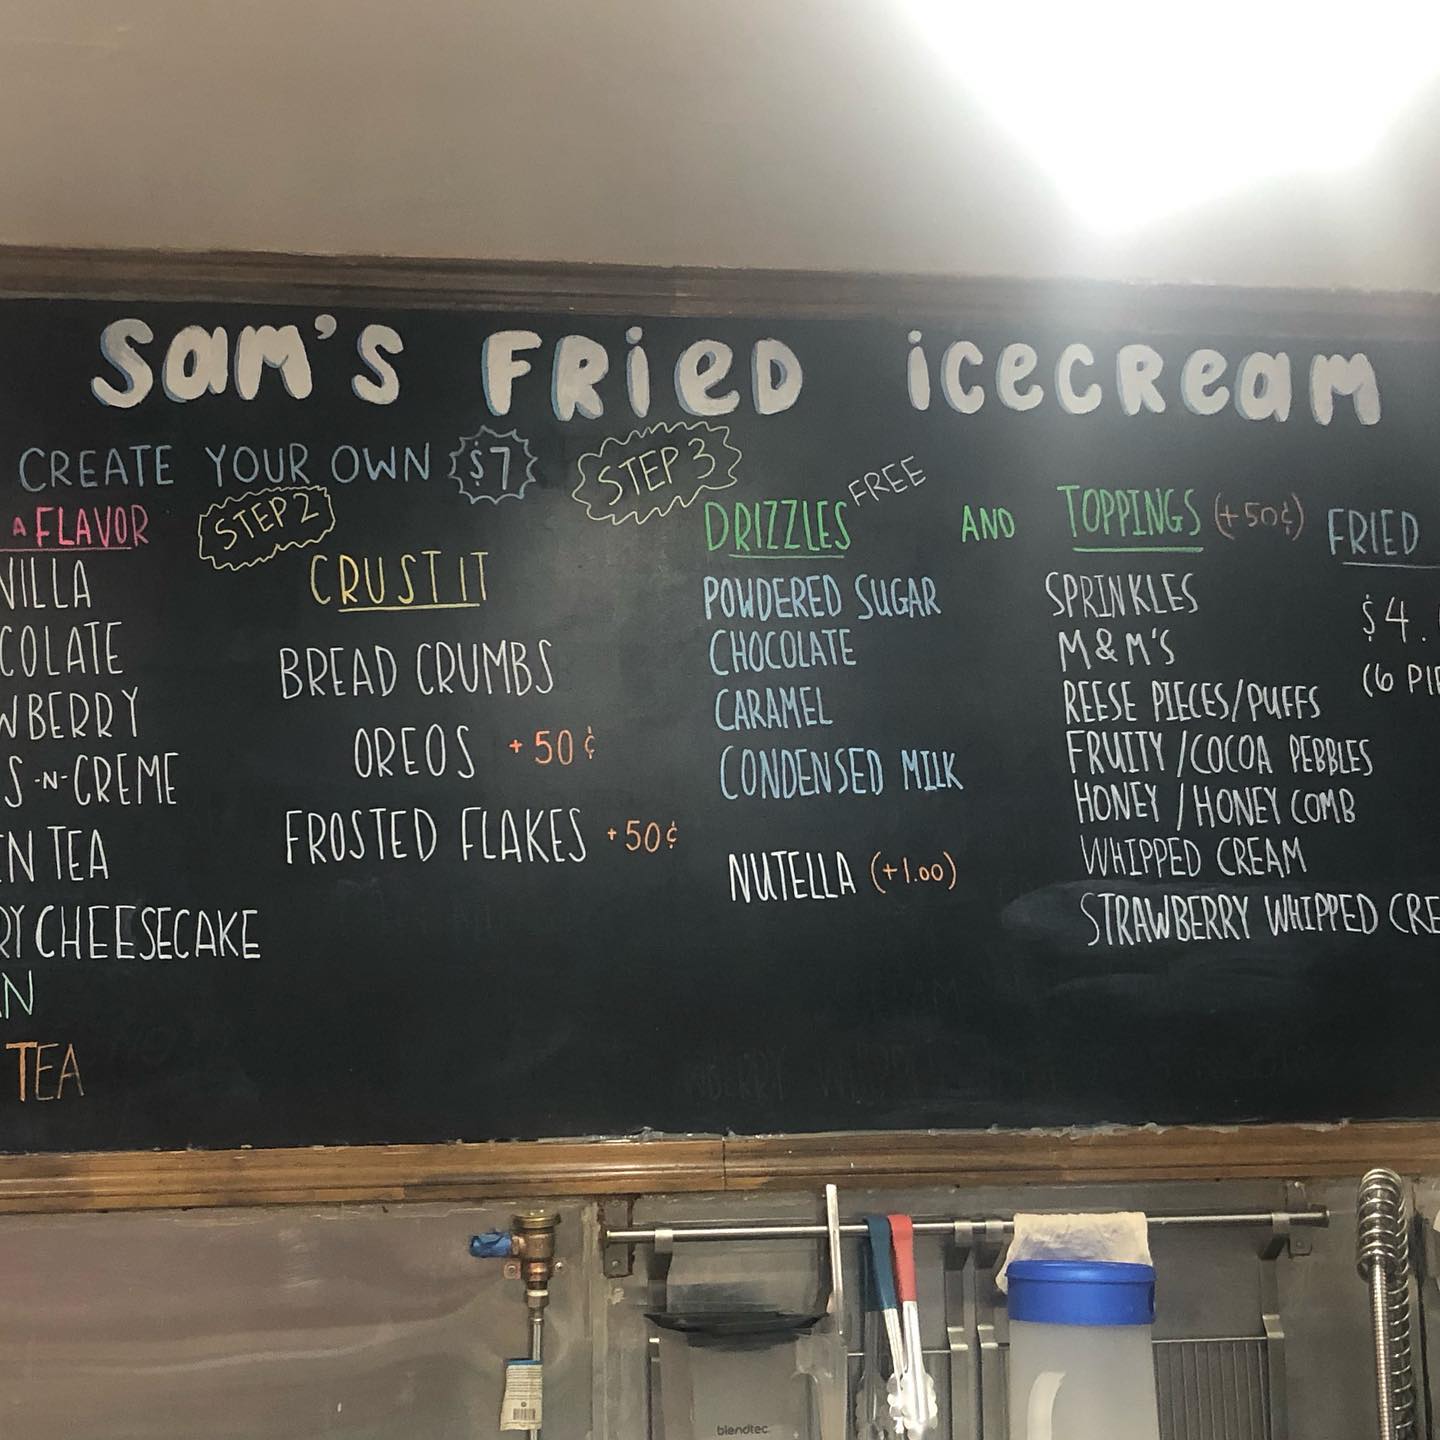 Sam's FRieD iceCReaM
CREATE YOUR OWN $7
A FLAVOR
NILLA
COLATE
WBERRY
S -N- CREME
N TEA
RY CHEESECAKE
N
TEA
STEP 2
CRUST IT
BREAD CRUMBS
OREOS +50¢
FROSTED FLAKES +50¢
STEP 3
DRIZZLES FREE
POWDERED SUGAR
CHOCOLATE
CARAMEL
CONDENSED MILK
NUTELLA (+1.00)
AND
TOPPINGS (+50¢)
SPRINKLES
M&M'S
REESE PIECES/PUFFS
FRUITY/COCOA PEBBLES
HONEY/HONEY COMB
WHIPPED CREAM
STRAWBERRY WHIPPED CRE
FRIED
$4.
(6 PIE
blendtec